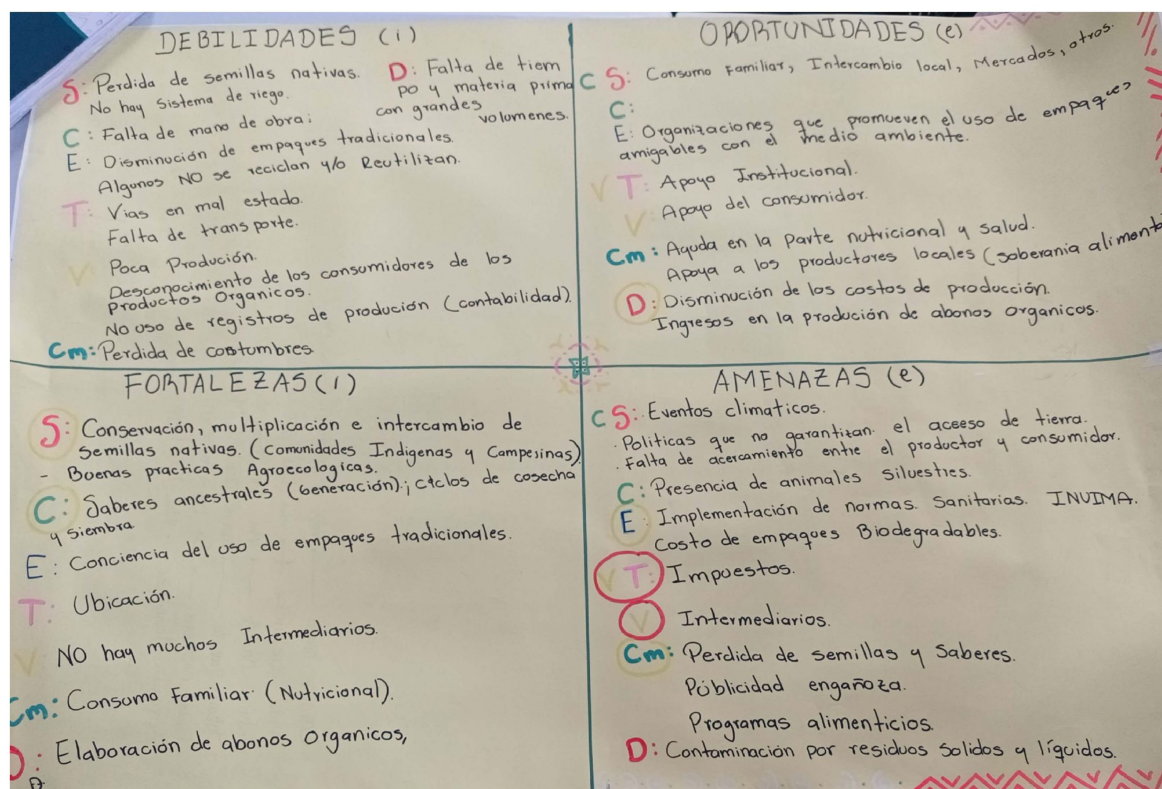 DEBILIDADES (i)
S: Perdida de semillas nativas.
No hay Sistema de riego.
D: Falta de tiem
po y materia prima
con grandes
volumenes.
C: Falta de mano de obra;
E: Disminución de empaques tradicionales.
Algunos NO se reciclan y/o Reutilizan.
T: Vias en mal estado.
Falta de transporte.
V: Poca Produción.
Desconocimiento de los consumidores de los
Productos Organicos.
No uso de registros de produción (contabilidad).
Cm: Perdida de costumbres
OPORTUNIDADES (e)
C S: Consumo Familiar, Intercambio local, Mercados, otros.
C:
E: Organizaciones que promueven el uso de empaques
amigables con el medio ambiente.
V T: Apoyo Institucional.
V Apoyo del consumidor.
Cm: Aguda en la Parte nutricional y salud.
Apoya a los productores locales (soberania alimenta
D: Disminución de los costos de producción.
Ingresos en la produción de abonos organicos.
FORTALEZAS (i)
S: Conservación, multiplicación e intercambio de
Semillas nativas. (Comunidades Indigenas y Campesinas)
- Buenas practicas Agroecologicas.
C: Saberes ancestrales (Generación).; ciclos de cosecha
y siembra.
E: Conciencia del uso de empaques tradicionales.
T: Ubicación.
V: NO hay muchos Intermediarios.
Cm: Consumo Familiar (Nutricional).
D: Elaboración de abonos organicos,
AMENAZAS (e)
C S: Eventos climaticos.
. Politicas que no garantizan el acceso de tierra.
. Falta de acercamiento entre el productor y consumidor.
C: Presencia de animales silvestres.
E Implementación de normas Sanitarias. INVIMA.
Costo de empaques Biodegradables.
V T: Impuestos.
V Intermediarios.
Cm: Perdida de semillas y Saberes.
Públicidad engañoza.
Programas alimenticios.
D: Contaminación por residuos solidos y líquidos.